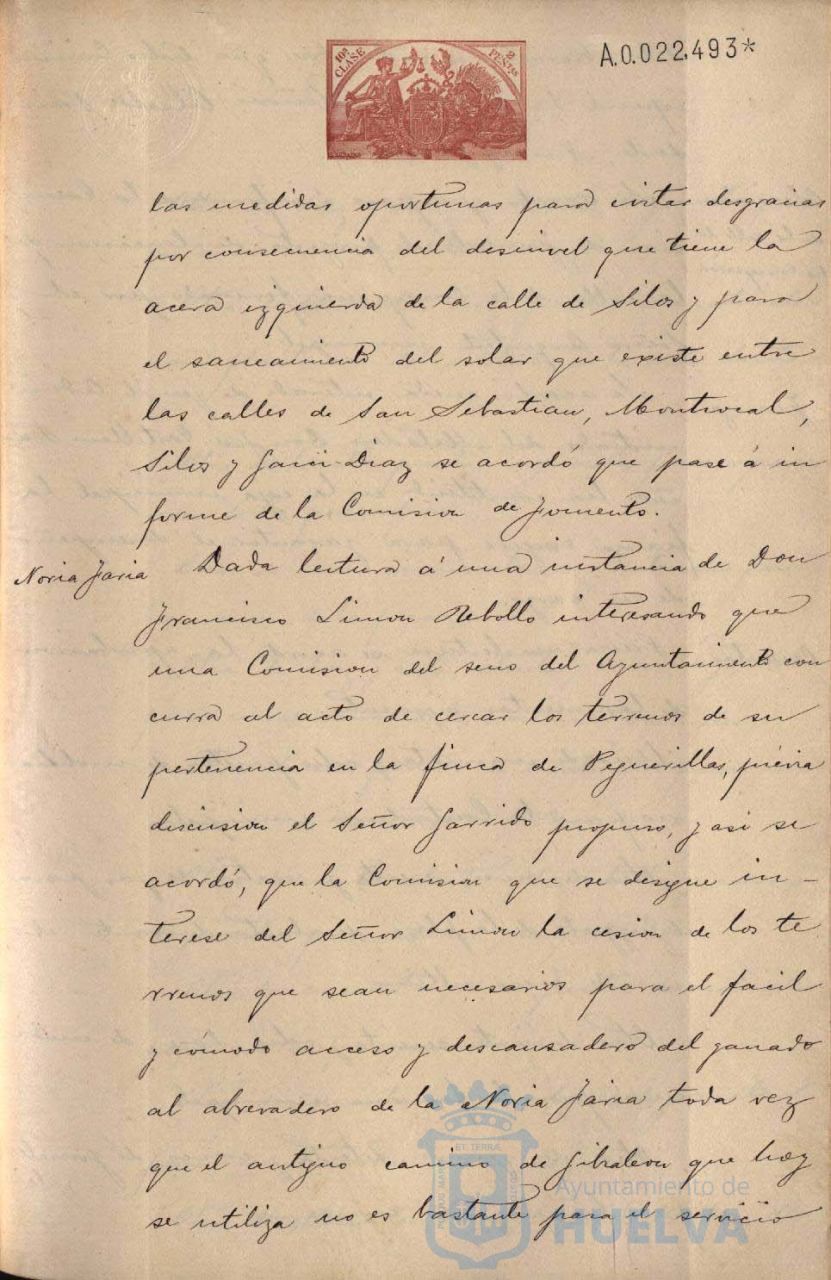 10ª CLASE
2 PESETAS
A.0.022,493*
las medidas oportunas para evitar desgracias
por consecuencia del desnivel que tiene la
acera izquierda de la calle de Silos y para
el saneamiento del solar que existe entre
las calles de San Sebastian, Montrocal,
Silos y Garci-Diaz se acordó que pase á in
forme de la Comision de Fomento.
Noria Jaria
Dada lectura á una instancia de Don
Francisco Limon Rebollo interesando que
una Comision del seno del Ayuntamiento con
curra al acto de cercar los terrenos de su
pertenencia en la finca de Peguerillas, prévia
discusion el Señor Garrido propuso, y asi se
acordó, que la Comision que se designe in-
terese del Señor Limon la cesion de los te
rrenos que sean necesarios para el facil
y cómodo acceso y descansadero del ganado
al abrevadero de la Noria Jaria toda vez
que el antiguo camino de Gibraleon que hoy
se utiliza no es bastante para el servicio
Ayuntamiento de
HUELVA